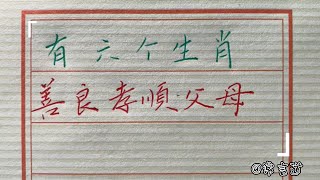 有六个生肖
善良孝順父母